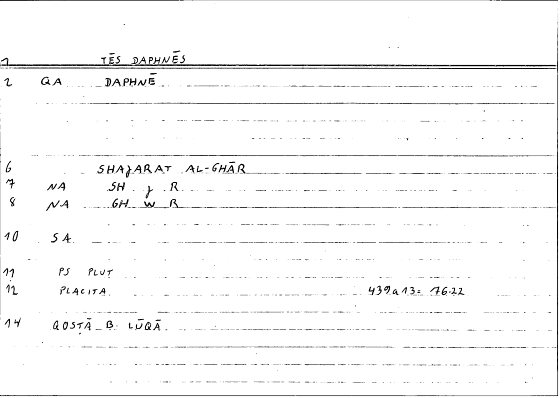 1 TĒS DAPHNĒS
2 QA DAPHNĒ
6 SHAJARAT AL-GHĀR
7 NA SH J R
8 NA GH W R
10 SA
11 PS PLUT
12 PLACITA 439a13= 76.22
14 QOSTĀ B LŪQĀ